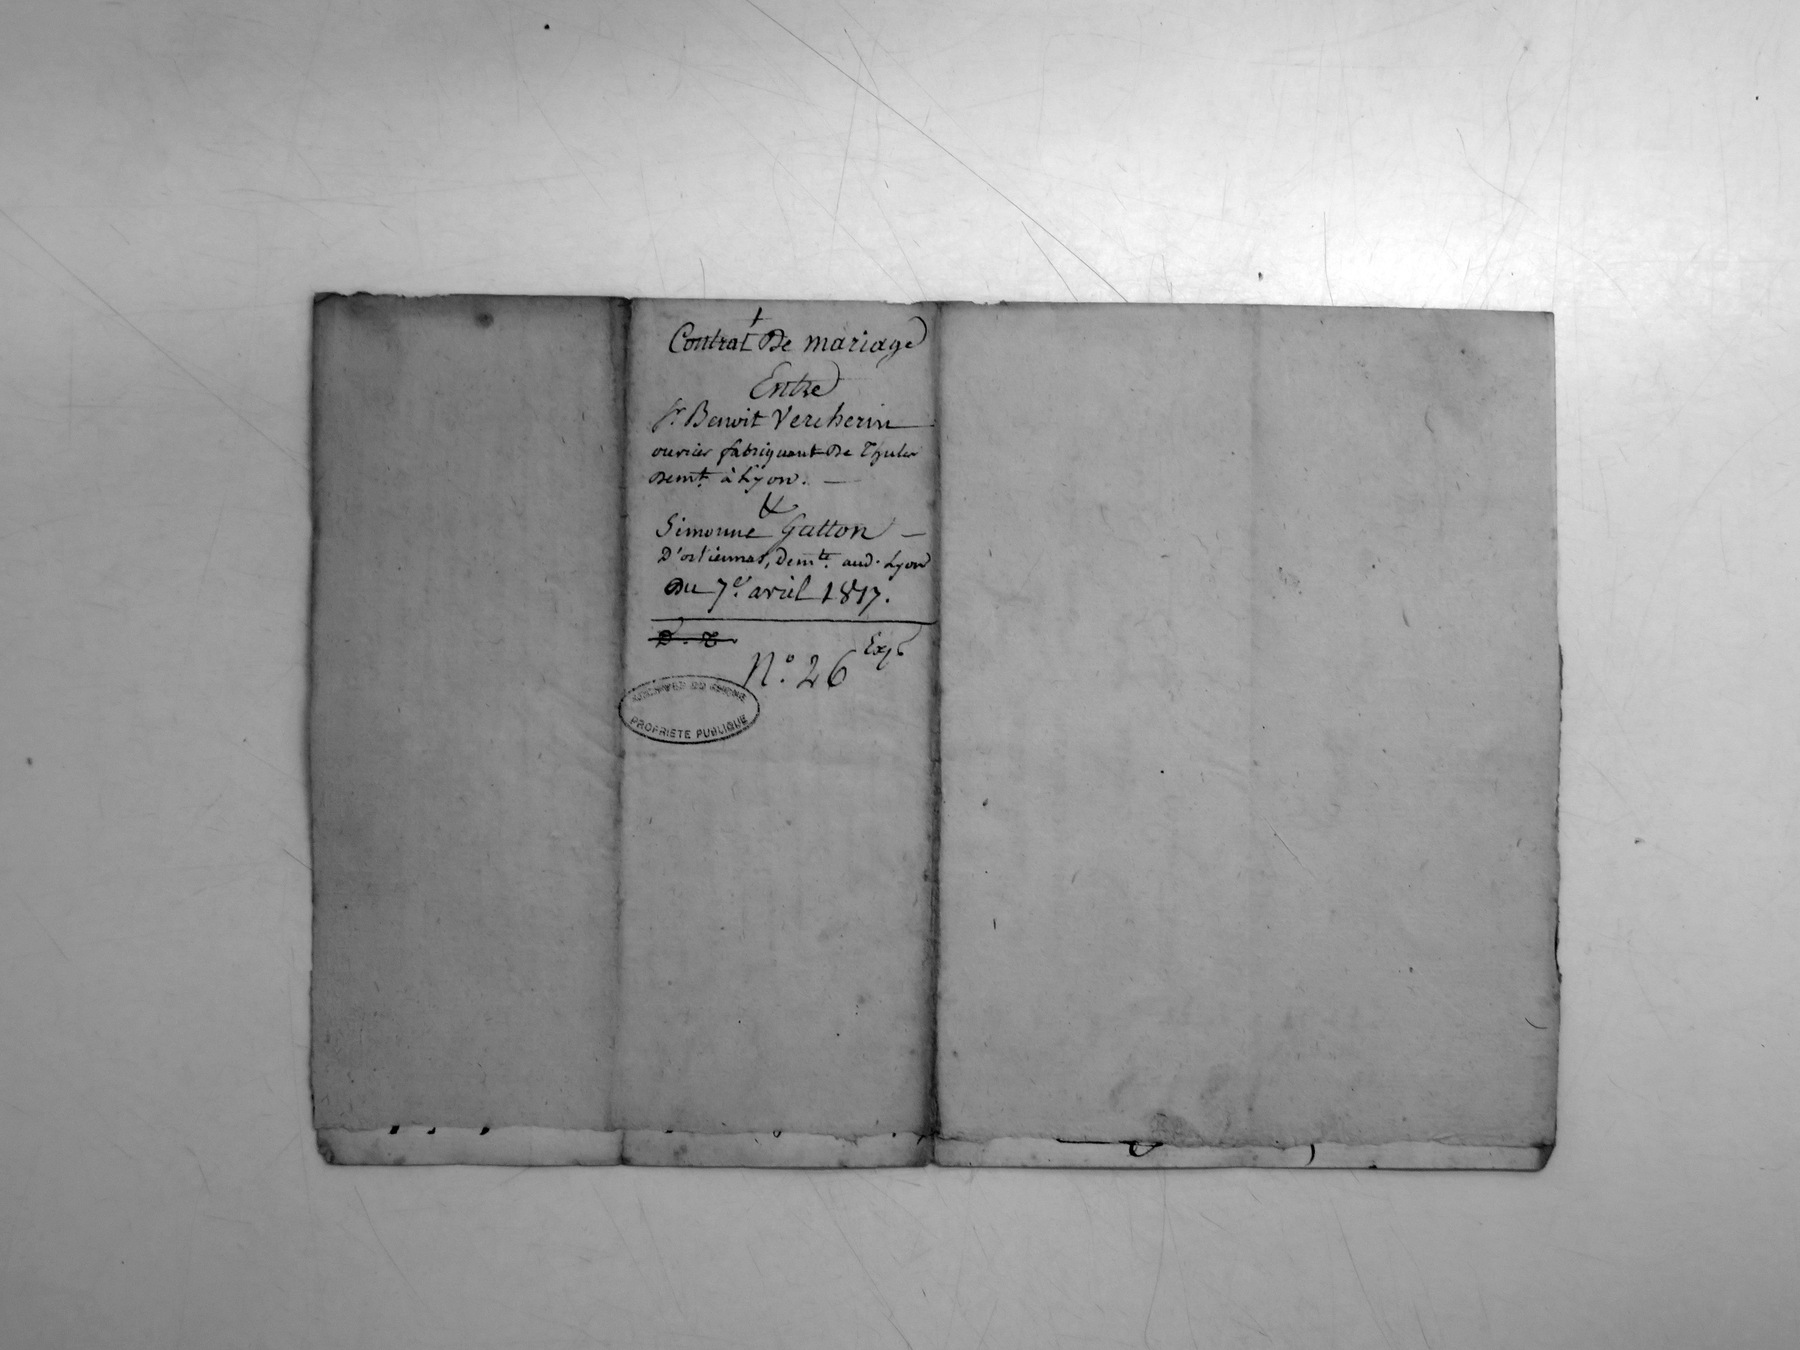 Contrat De mariage
Entre
Sr. Benoit Vercherin
ouvrier fabriquant De Thules
Demt. à Lyon.
&
Simonne Gatton
D'orliennas, Demte. aud. Lyon
Du 7e. avril 1817.
D. R.
Expé
N.° 26
ARCHIVES DU RHONE
PROPRIETE PUBLIQUE